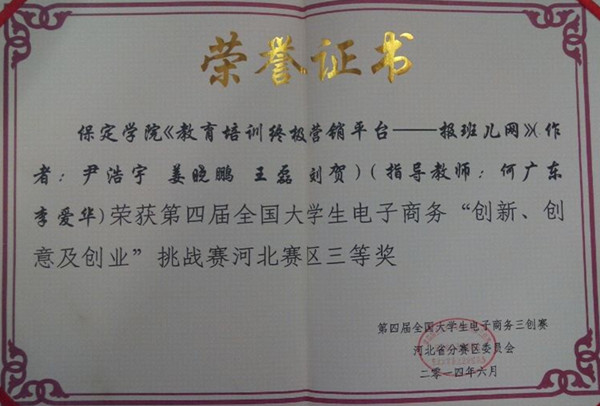 荣誉证书
保定学院《教育培训终极营销平台——报班儿网》(作
者：尹浩宇 姜晓鹏 王磊 刘贺)(指导教师：何广东
李爱华)荣获第四届全国大学生电子商务“创新、创
意及创业”挑战赛河北赛区三等奖
第四届全国大学生电子商务三创赛
河北省分赛区委员会
二零一四年六月